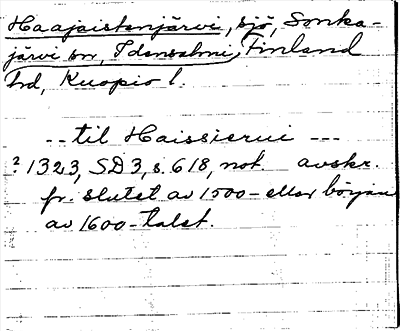 Haajaistenjärvi, sjö, Sonka-
järvi sn, Idensalmi, Finland
hd, Kuopio l.
-- til Haissierui ---
? 1323, SD 3, s. 618, not. avskr.
fr. slutet av 1500- eller början
av 1600-talet.